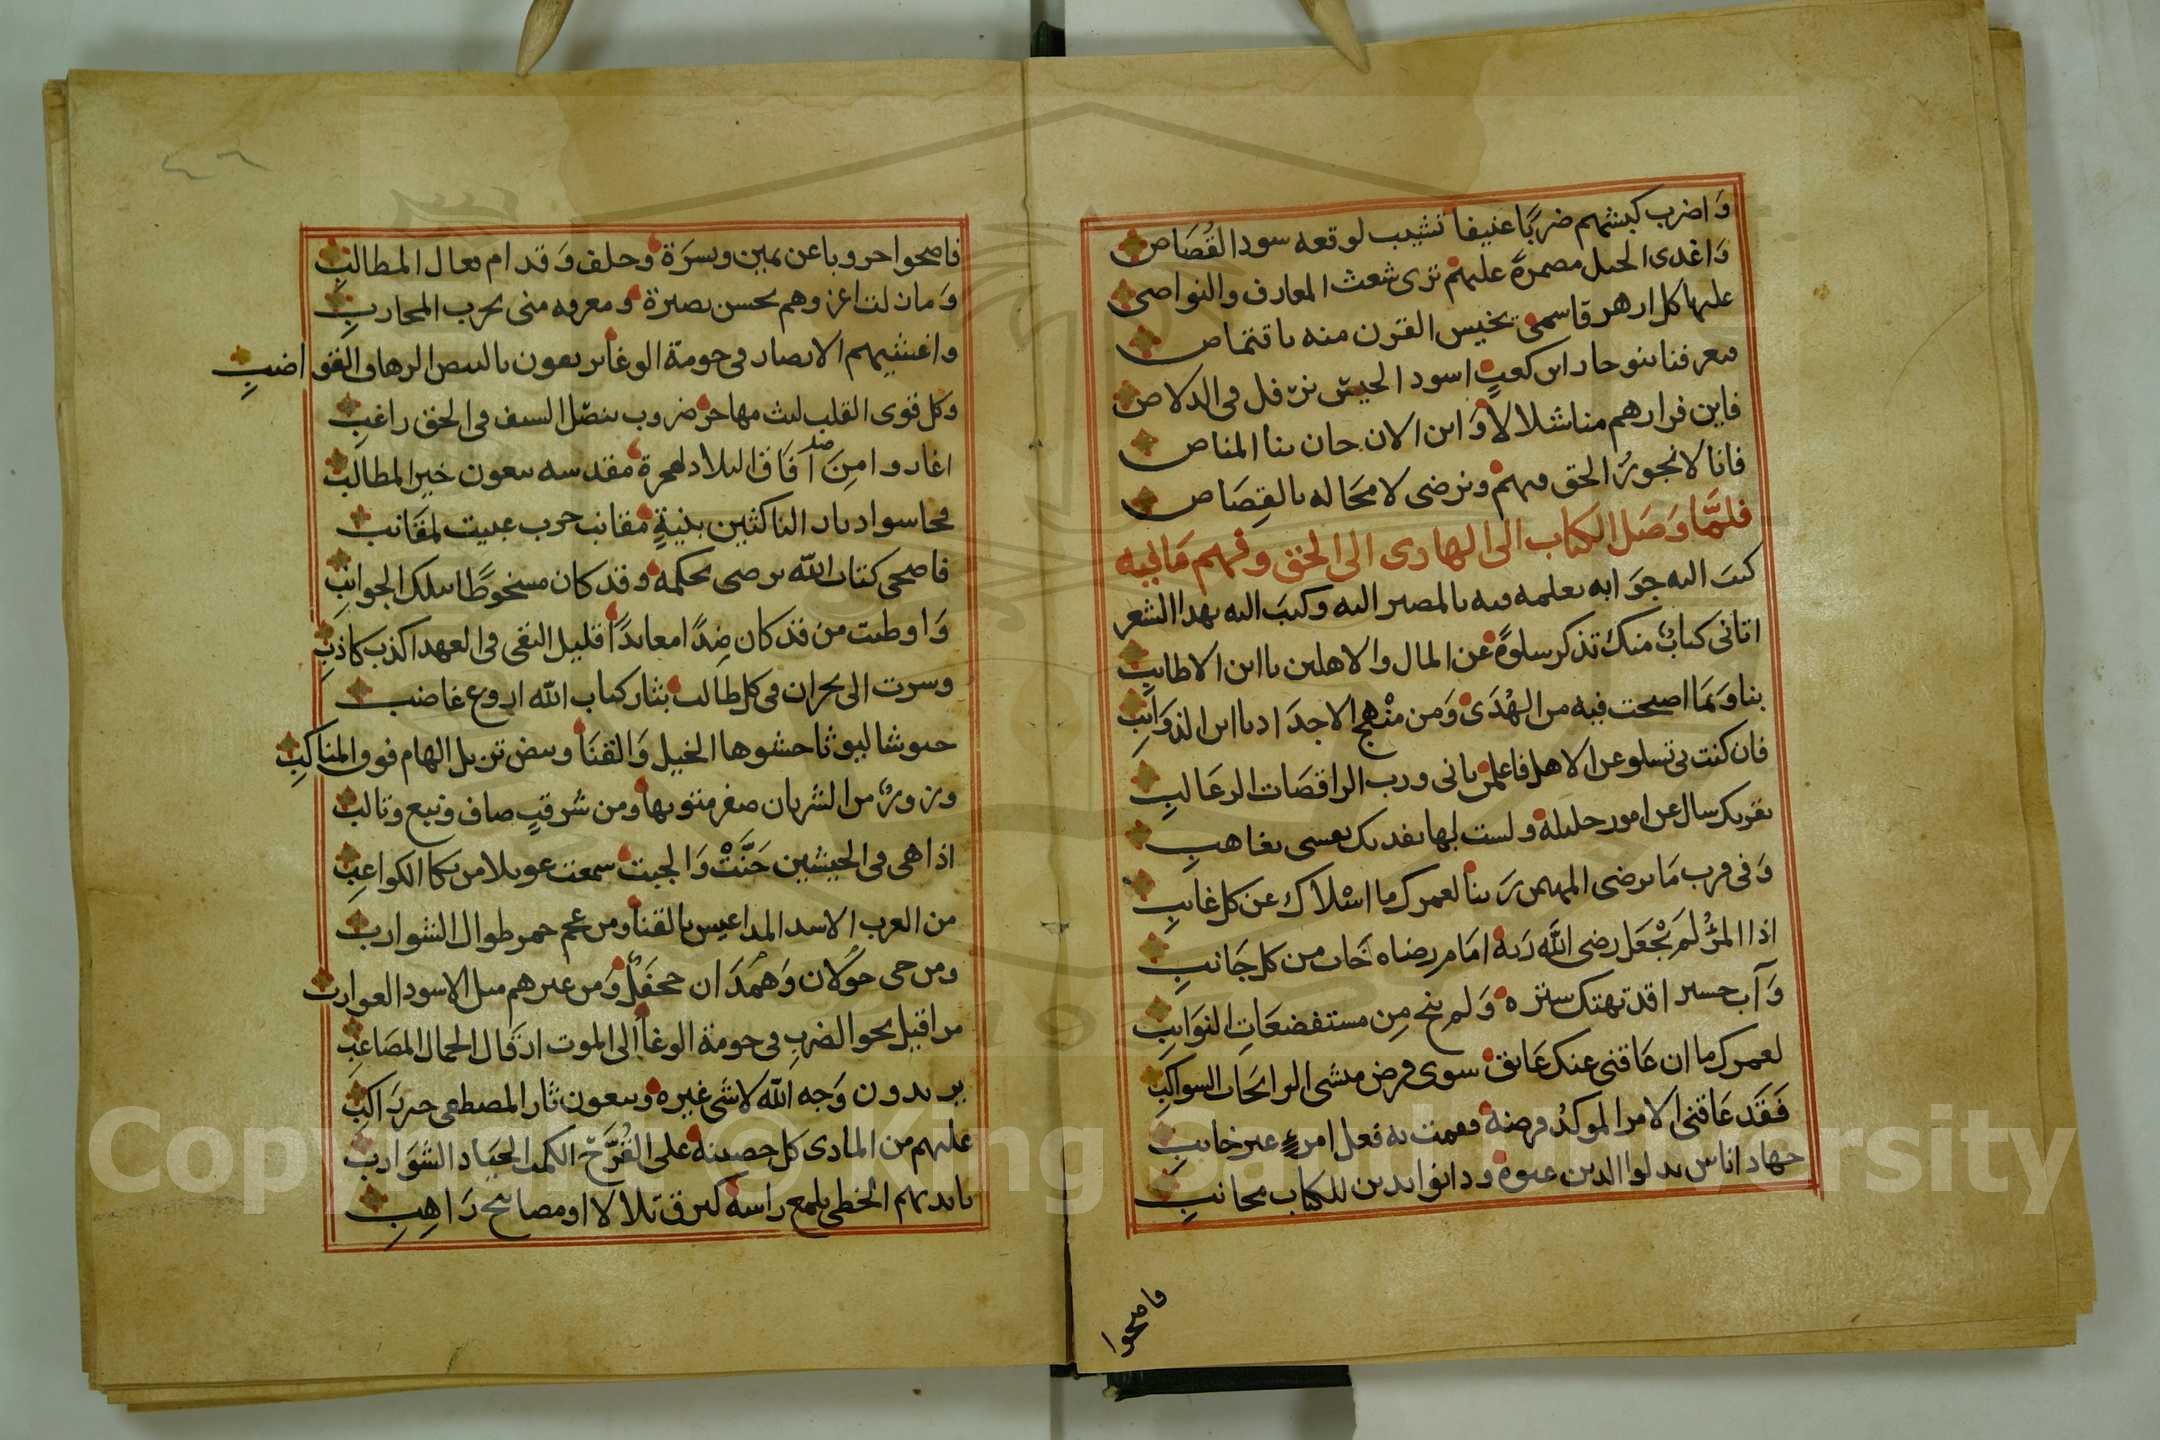 وَاضرب كبشهم ضربًا عنيفا تشيب لوقعه سود القُصَاص
وَاغدى الخيل مصمرة عليهم ترى شعث المعارف والنواصى
عليها كل ازهر قاسمى يخيس القرن منه باقتماص
فعرفنا بنو حار ابن كعبٍ اسود الجيش ترفل فى الدلاص
فاين فرارهم منا شلالا وَاين الان حان بنا المناص
فانا لا نجوزُ الحق فيهم ونرضى لا محَاله بالقِصَاص
فلمَّا وَصَل الكتاب الى الهادى الى الحق وفهم مَا فيه
كتب اليه جوَابه يعلمه فيه بالمصير اليه وكتبَ اليه بهذا الشعر
اتانى كتابٌ منك تذكر سلوةً عن المال والاهلين يا ابن الاطايبِ
بنا وَبما اصبحت فيه من الهُدَى وَمن منْهج الاجدَاد يا ابن الذوَايبِ
فان كنت بى تسلو عن الاهل فاعلمن بانى ورب الراقصَات الرعَالبِ
بقربك سال عن امور جليلة ولست لها بفديك نفسى بغاهبِ
وَفى قرب مَا يرضى المهيمن رَبنا لعمرك ما اسْلاك عن كل غايبِ
اذا المرْ لَم يْجعَل رضى اللَّه رَبه امَام رضاه خَاب من كل جَانبِ
وَآب حسيرا قد تهتك ستره وَلم ينج مِن مستفضعَاتِ النوَايبِ
لعمرك ما ان عَاقنى عنك عَايق سوى فرض منشى الرايحَات السواكبِ
فَقَد عَاقنى الامر الموكدُ فرضه فقمت به فعل امرءٍ غير خايبِ
جهاد اناس بدلوا الدين عنوة ودانوا بدين للكتاب مجانبِ
فاصحوا
فاصحوا حروبا عن يمين ويسرَة وخلف وَقدام فعال المطالبِ
وَما زلت اغزوهم بحسن بصيرة ومعرفه منى بحرب المحاربِ
واغشيهم الانصار فى حومة الوغا يربعون بالبيض الرهاف القواضبِ
وكل قوى القلب ليث مهاجر ضروب بنصل السيف فى الحق راغبِ
اغاروا مِنَ آفَاق البلاد لهجرة مقدسه يبغون خير المطالبِ
فجاسوا ديار الناكثين بنيةٍ مقانب حرب عبيت لمقَانب
فاضحى كتاب اللّه يرضى بحكمه وقد كان مسخوطًا بتلك الجوانبِ
وَاوطيت من قد كان ضِدًا معاندًا قليل التقى فى العهد اكذب كاذبِ
وسرت الى نجران فى كل طالب بثار كتاب اللّه اروع غاضب
جيوشا ليوثا حشوها الخيل وَالقنَا وبيض تزيل الهام فوق المناكبِ
وزورٌ من الشريان صفر متونها ومن شرقبٍ صاف ونبع وتالب
اذا هى فى الجيشين حَنَّتْ وَالجبت سمعت عويلا من بكا الكواعبِ
من العرب الاسد المداعيس بالقنا ومن عجم حمر طوال الشواربِ
ومن حى خَولان وَهَمْدَان جحفلٌ وَمن غيرهم مثل الاسود العواربِ
مراقيل نحو الضربِ فى حومة الوغا الى الموت ارقال الجمال المصَاعبِ
يريدون وَجه اللّه لا شى غيره ويبغون ثار المصطفى خير رَاكبِ
عليهم من المادى كل حصينة على القُرَّح الكمت الجيَاد الشوَازبِ
بايديهم الخطى يلمع راسه كبرق تلالا او مصابيح رَاهِبِ